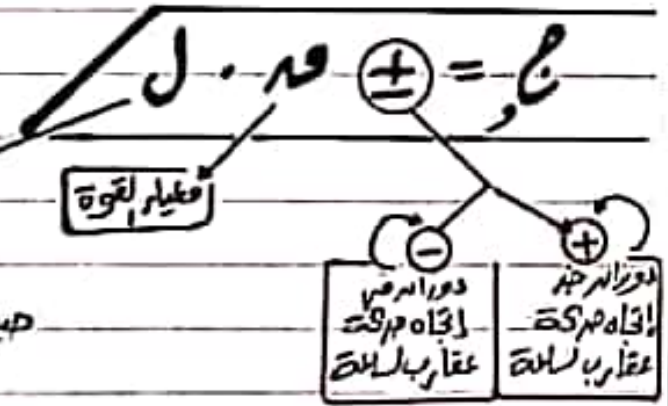 ج و = ± ق · ل
معيار القوة
+
دوران ضد
إتجاه حركة
عقارب الساعة
-
دوران في
إتجاه حركة
عقارب الساعة